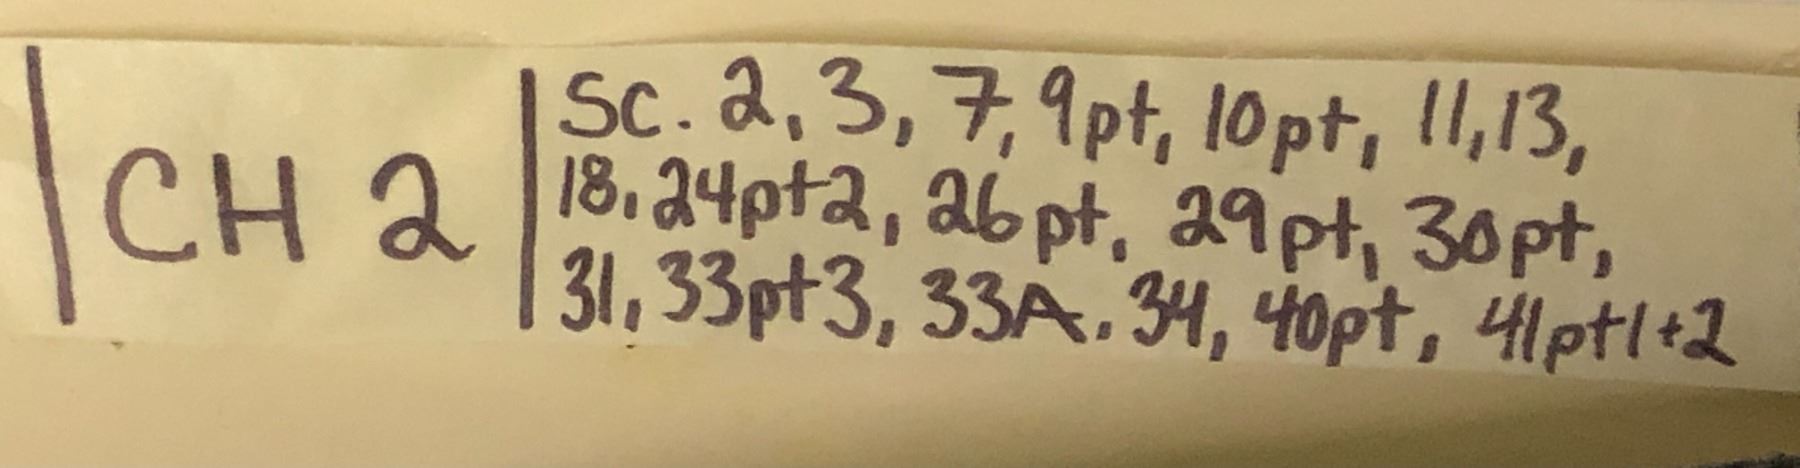 CH 2
SC. 2, 3, 7, 9pt, 10pt, 11, 13,
18, 24pt2, 26pt, 29pt, 30pt,
31, 33pt3, 33A, 34, 40pt, 41pt1+2